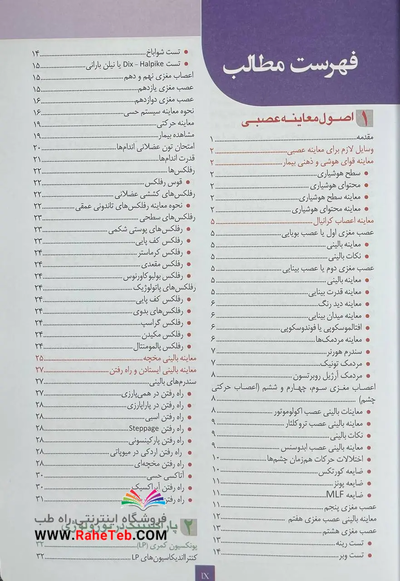 فهرست مطالب
۱ اصول معاینه عصبی
مقدمه ۱
وسایل لازم برای معاینه عصبی ۲
معاینه قوای هوشی و ذهنی بیمار ۲
• سطح هوشیاری ۲
• محتوای هوشیاری ۲
• معاینه سطح هوشیاری ۲
• معاینه محتوای هوشیاری ۴
معاینه اعصاب کرانیال ۵
عصب مغزی اول یا عصب بویایی ۵
• معاینه بالینی ۵
• نکات بالینی ۵
عصب مغزی دوم یا عصب بینایی ۵
• معاینه بالینی ۵
• معاینه قدرت بینایی ۵
• معاینه دید رنگ ۶
• معاینه میدان بینایی ۶
• افتالموسکوپی یا فوندوسکوپی ۶
• معاینه مردمک‌ها ۶
• سندرم هورنر ۷
• مردمک تونیک ۷
• مردمک آرژیل روبرتسون ۸
اعصاب مغزی سوم، چهارم و ششم (اعصاب حرکتی
چشم) ۸
• معاینات بالینی عصب اکولوموتور ۸
• معاینه بالینی عصب تروکلئار ۹
• نکات بالینی ۹
• معاینه بالینی عصب ابدوسنس ۹
• اختلالات حرکات همزمان چشم‌ها ۱۰
• ضایعه کورتکس ۱۰
• ضایعه پونز ۱۱
• ضایعه MLF ۱۱
عصب مغزی پنجم ۱۲
معاینه بالینی عصب مغزی هفتم ۱۲
عصب مغزی هشتم ۱۳
• تست رینه ۱۳
• تست وبر ۱۴
• تست شواباخ ۱۴
• تست Dix – Halpike یا نیلن بارانی ۱۵
اعصاب مغزی نهم و دهم ۱۵
عصب مغزی یازدهم ۱۵
عصب مغزی دوازدهم ۱۶
نحوه معاینه سیستم حسی ۱۶
معاینه حرکتی
مشاهده بیمار ۱۹
امتحان تون عضلانی اندام‌ها ۲۰
قدرت اندام‌ها ۲۱
رفلکس‌ها ۲۲
• قوس رفلکس ۲۲
رفلکس‌های کششی عضلانی ۲۲
• نحوه معاینه رفلکس‌های تاندونی عمقی ۲۲
رفلکس‌های سطحی ۲۳
• رفلکس‌های پوستی شکمی ۲۳
• رفلکس کف پایی ۲۳
• رفلکس کرماستر ۲۴
• رفلکس مقعدی ۲۴
• رفلکس بولبوکاورنوس ۲۴
رفلکس‌های پاتولوژیک ۲۴
• رفلکس کف پایی ۲۴
• رفلکس‌های بدوی ۲۴
• رفلکس گراسپ ۲۴
• رفلکس مکیدن ۲۴
• رفلکس پالمومنتال ۲۴
معاینه بالینی مخچه ۲۵
معاینه بالینی ایستادن و راه رفتن ۲۷
سندرم‌های بالینی ۲۷
• راه رفتن در همی‌پارزی ۲۷
• راه رفتن در پاراپارزی ۲۷
• راه رفتن اسبی ۲۸
• راه رفتن Steppage ۲۸
• راه رفتن پارکینسونی ۲۸
• راه رفتن اردکی در میوپاتی ۲۸
• راه رفتن مخچه‌ای ۲۸
• آتاکسی حسی ۳۰
• راه رفتن آپراکسیک ۳۰
• راه رفتن ۳۱
فروشگاه اینترنتی راه طب
www.RaheTeb.com
۲
پونکسیون کمری (LP) ۳۲
کنتراندیکاسیون‌های LP ۳۲
IX